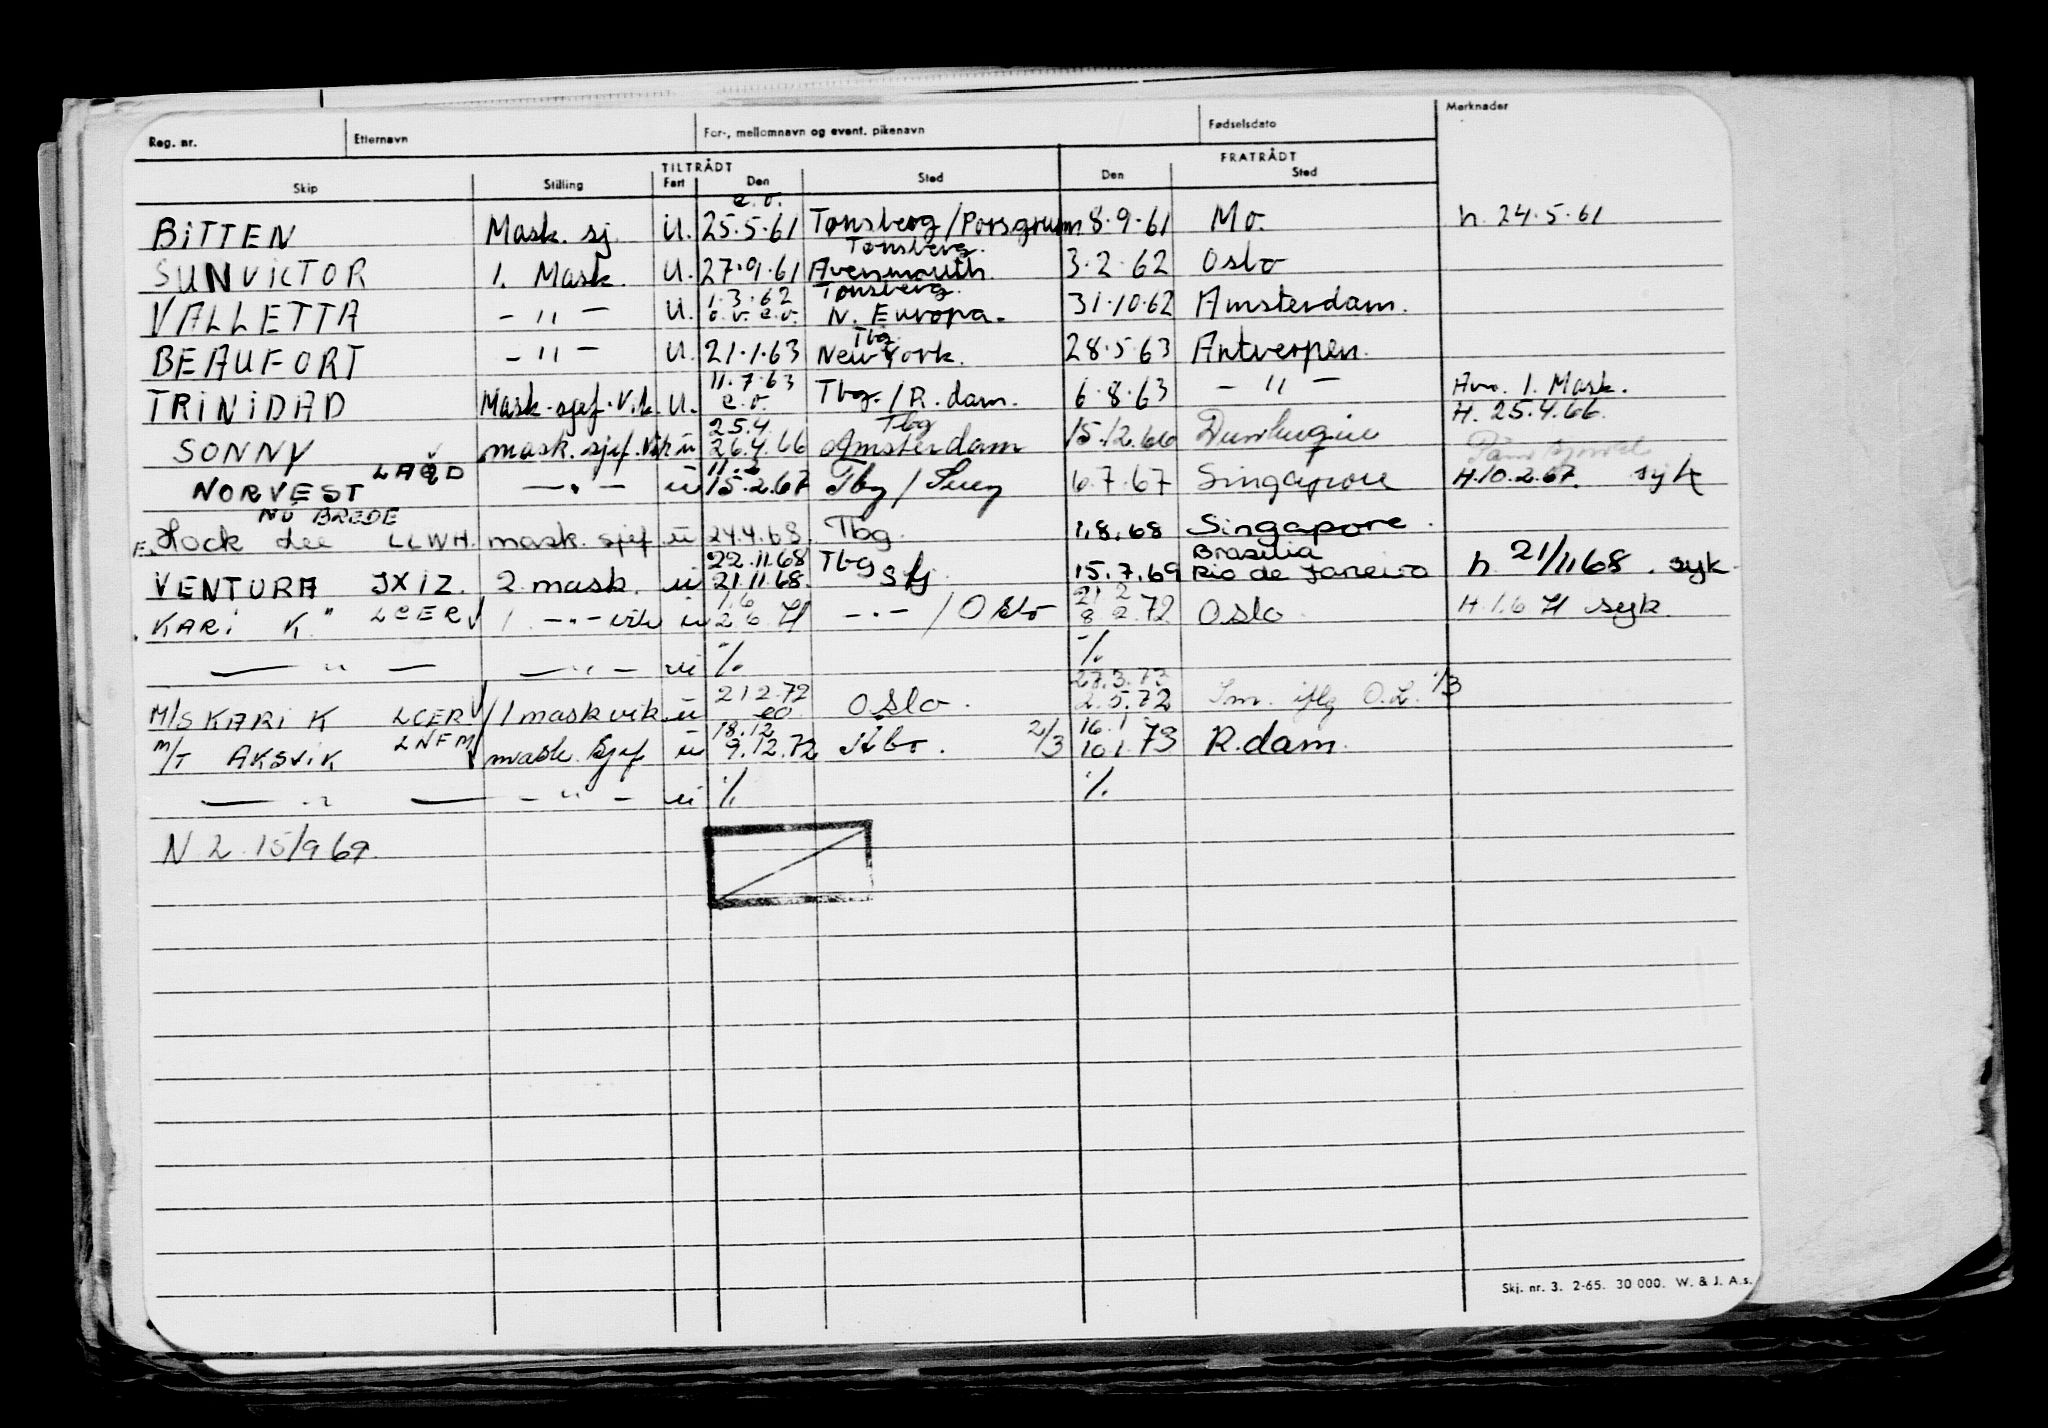 Reg. nr. Etternavn For-, mellomnavn og event. pikenavn Fødselsdato Merknader
TILTRÅDT FRATRÅDT
Skip Stilling Fart Den Sted Den Sted
e.o.
BITTEN Mask. sj. U. 25.5.61 Tønsberg/Porsgrunn 8.9.61 Mo. h. 24.5.61
Tønsberg.
SUNVICTOR 1. Mask. U. 27.9.61 Avenmouth. 3.2.62 Oslo
1.3.62 Tønsberg.
VALLETTA - " - U. o.v. e.o. N. Europa. 31.10.62 Amsterdam.
Tbg.
BEAUFORT - " - U. 21.1.63 New York. 28.5.63 Antverpen.
11.7.63
TRINIDAD Mask.sjef.Vik. U. e.o. Tbg./R.dam. 6.8.63 - " - Avm. 1. Mask.
H. 25.4.66.
25.4. Tbg
SONNY mask.sjef.Vik ü 26.4.66 Amsterdam 15.12.66
11.2
NORVEST LAQD - " - ü 15.2.67 Tbg / Suez 6.7.67 Singapore H.10.2.67. syk
NÜ BREDE
Hock Lee LLWH. mask. sjef ü 24.4.68 Tbg. 1.8.68 Singapore.
22.11.68 Brasilia
VENTURA JXIZ. 2. mask. ü 21.11.68. Tbg Sfj. 15.7.69 Rio de Janeiro h. 21/11.68. syk.
1.6 21 2
"KARI K" LCER 1. - " - vik ü 2 6 71 - " - / Oslo 8 2 72 Oslo. H. 1.6 71 syk.
— " — — " — ü ./. ./.
27.3.73
M/S KARI K LCER 1 mask vik. ü 21 2.72 eo Oslo. 2.5.72 O.L. 1/3
18.12 16.1
M/T AKSVIK LNFM mask. Sjef ü 9.12.72 Åbo. 2/3 10 1.73 R.dam.
— " — - " - ü ./. ./.
N 2 15/9 69.
Skj. nr. 3. 2-65. 30 000. W. & J. A.s.